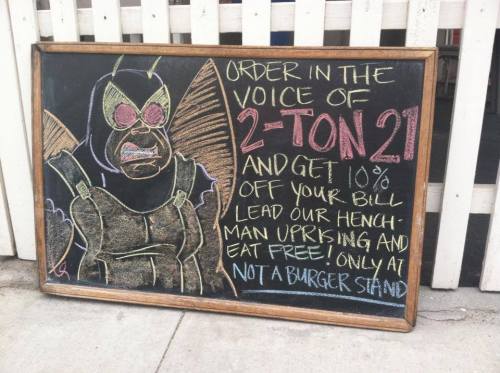 ORDER IN THE
VOICE OF
2-TON 21
AND GET 10%
OFF YOUR BILL
LEAD OUR HENCH-
MAN UPRISING AND
EAT FREE! ONLY AT
NOT A BURGER STAND